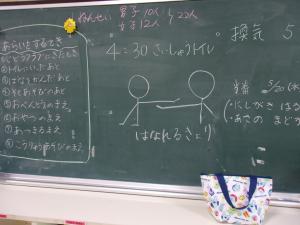 1ねんせい 男子10人 22人
女子12人
4=30 さいしゅうトイレ
換気 5
あらいとするとき
①じどうクラブにきたとき
②トイレにいったあと
③はなをかんだあと
④そとあそびのあと
⑤おべんとうのまえ
⑥おやつのまえ
⑦あつまるまえ
⑧こうりゅうあそびのまえ
はなれるきょり
5/20(水
(・にしがき
(・あさの まど